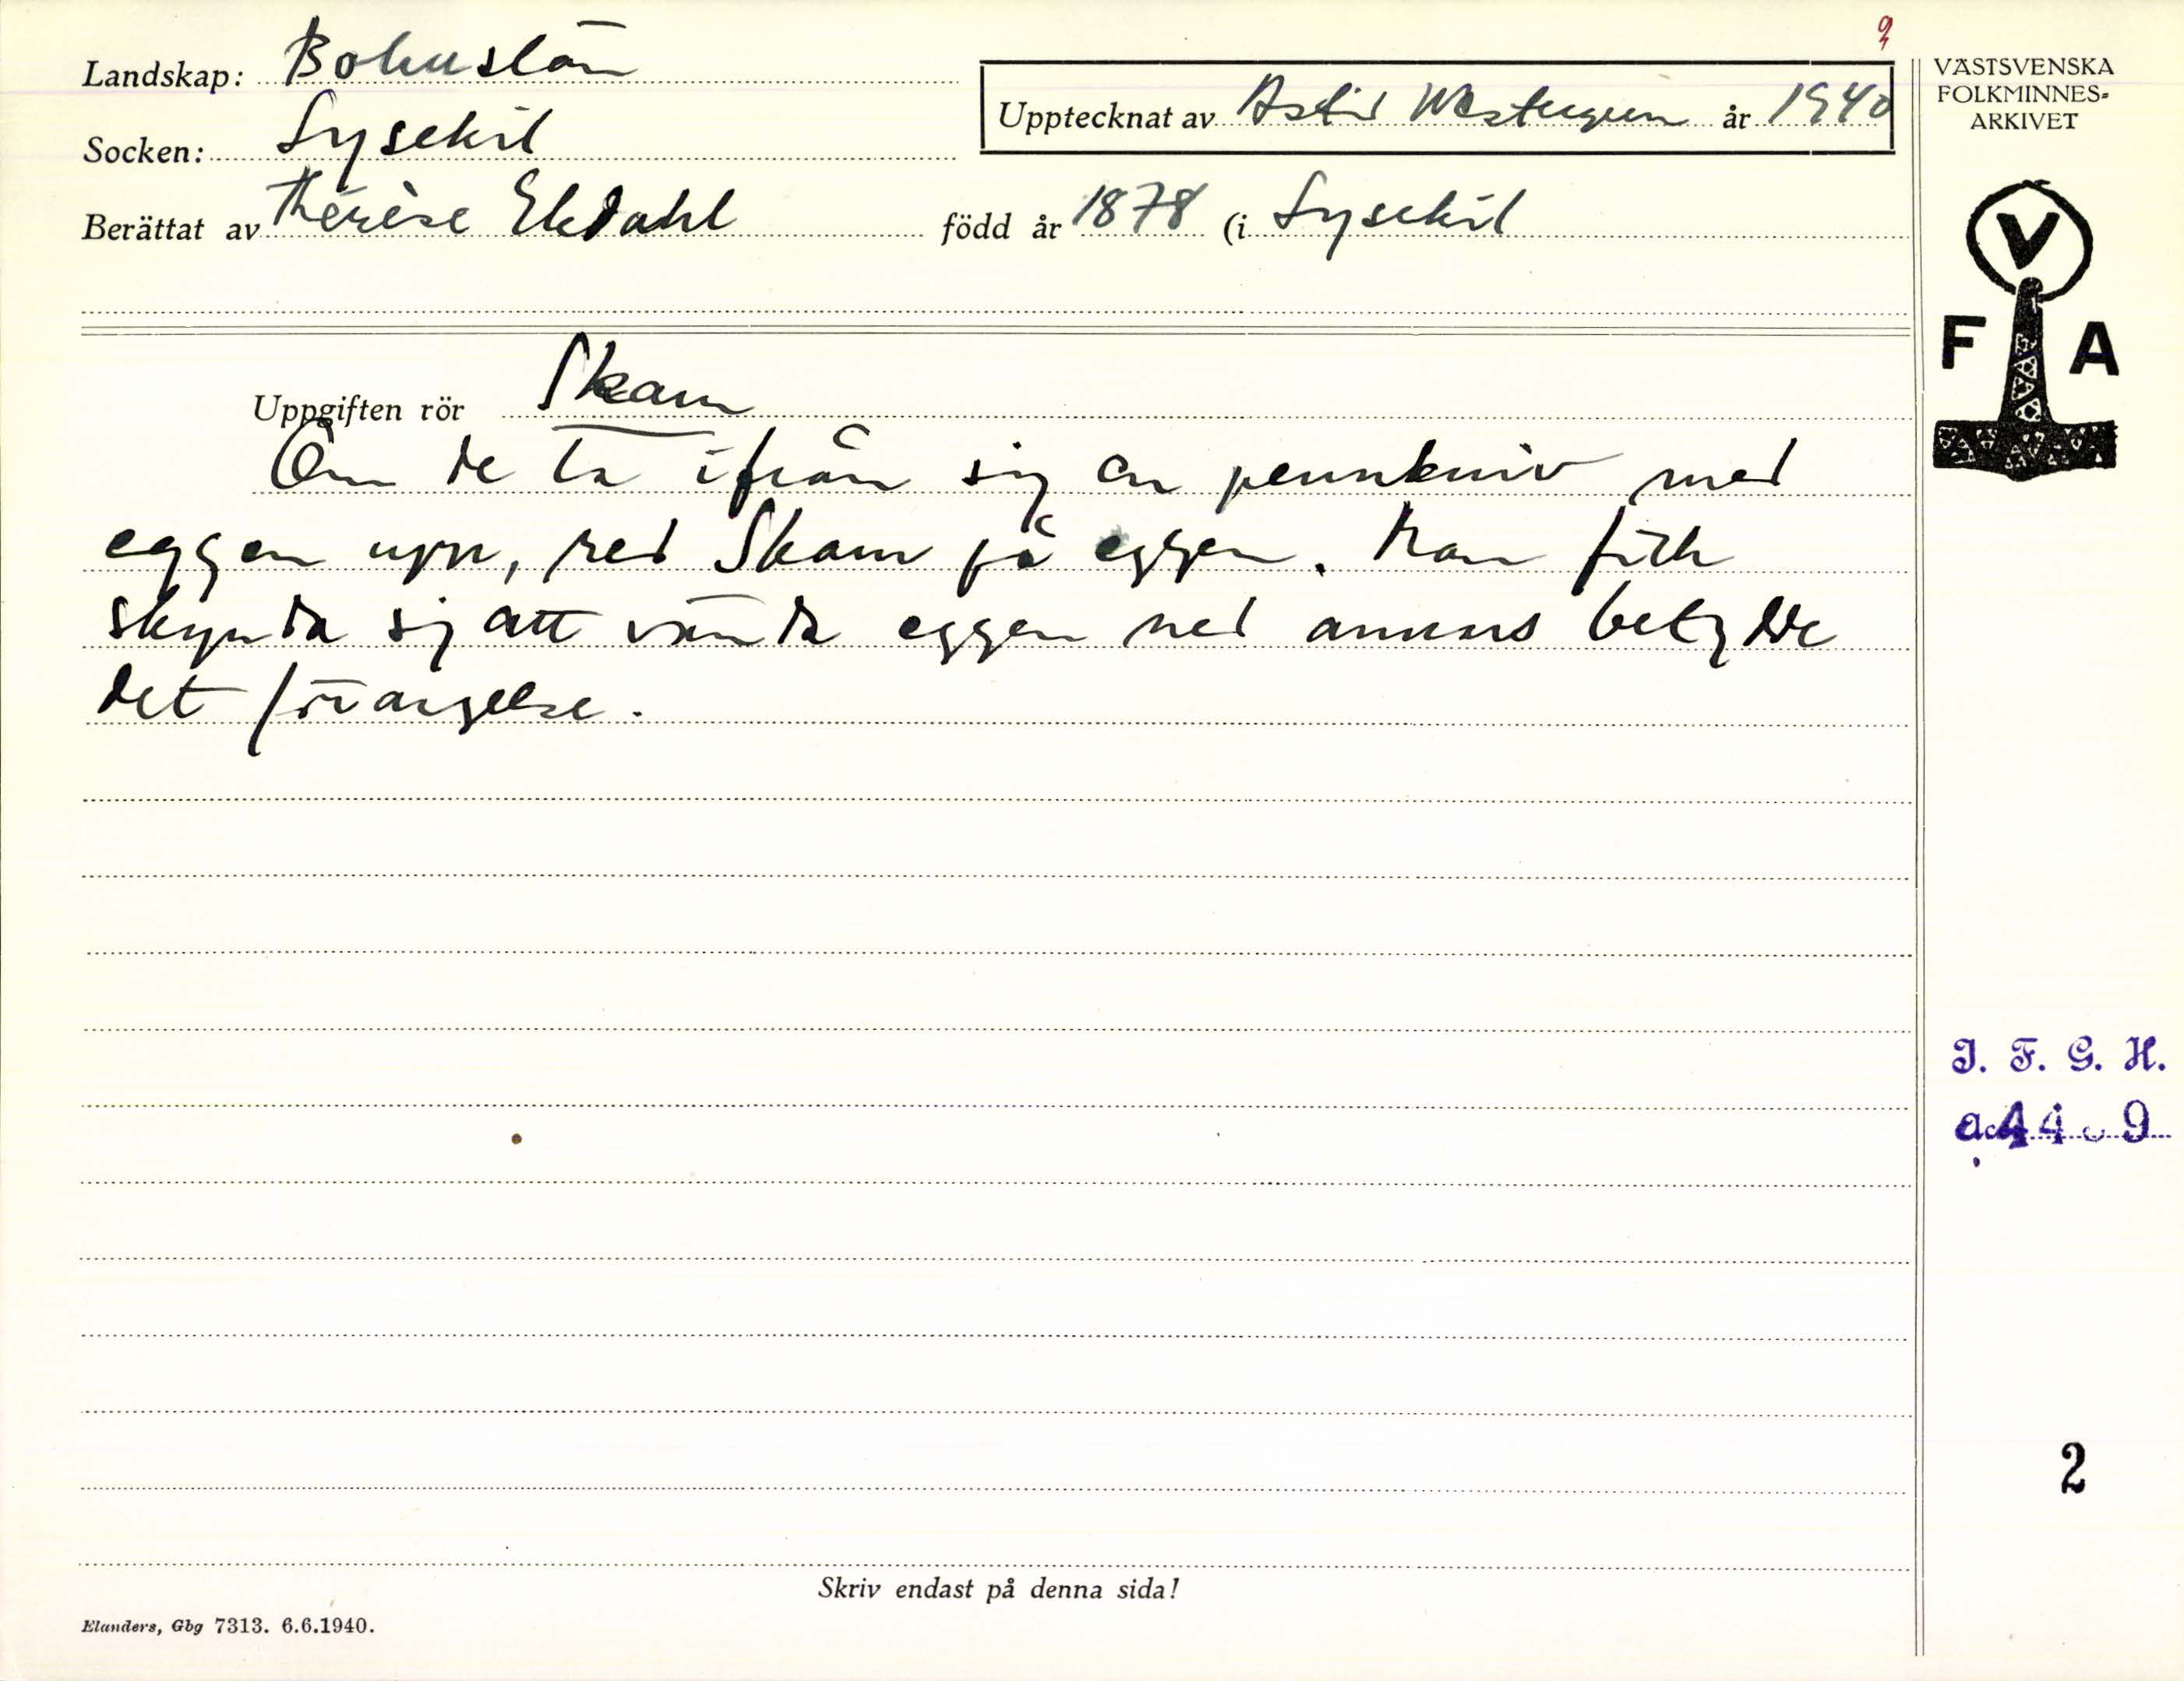 2
Landskap: Bohuslän
VÄSTSVENSKA
FOLKMINNES=
ARKIVET
Upptecknat av Astrid Westergren år 1940
Socken: Lysekil
Berättat av Thérèse Ekdahl född år 1878 (i Lysekil
V
F A
Uppgiften rör Skam
Om de la ifrån sig en pennkniv med
eggen upp, red Skam på eggen. Man fick
skynda sig att vända eggen ned annars betydde
det förargelse.
I. F. G. H.
acc 4409
2
Skriv endast på denna sida!
Elanders, Gbg 7313. 6.6.1940.